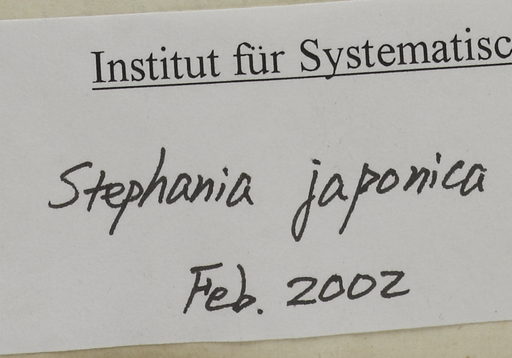 Institut für Systematisc
Stephania japonica
Feb. 2002